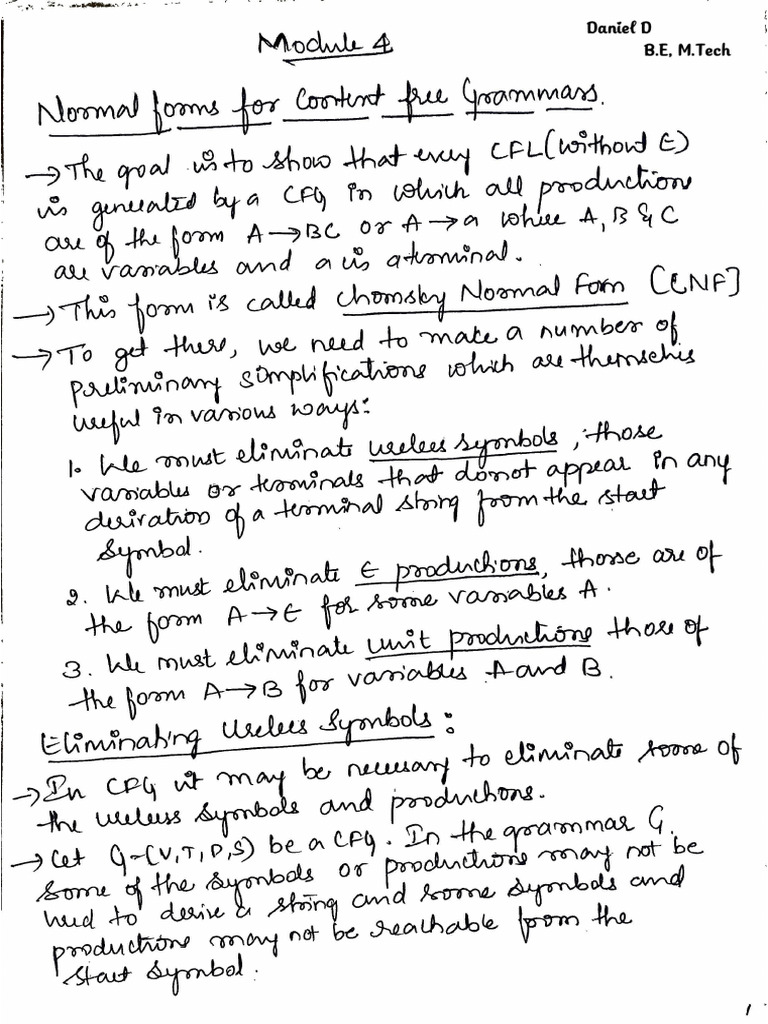 Daniel D
B.E, M.Tech
Module 4
Normal forms for Context free Grammars.
→ The goal is to show that every CFL (without ∈)
is generated by a CFG in which all productions
are of the form A→BC or A→a where A, B & C
are variables and a is a terminal.
→ This form is called Chomsky Normal Form [CNF]
→ To get there, we need to make a number of
preliminary simplifications which are themselves
useful in various ways:
1. We must eliminate useless symbols, those
variables or terminals that donot appear in any
derivation of a terminal string from the start
symbol.
2. We must eliminate ∈ productions, those are of
the form A→∈ for some variables A.
3. We must eliminate unit productions those of
the form A→B for variables A and B.
Eliminating Useless Symbols:
→ In CFG it may be necessary to eliminate some of
the useless symbols and productions.
→ Let G=(V,T,P,S) be a CFG. In the grammar G.
Some of the symbols or productions may not be
used to derive a string and some symbols and
productions may not be reachable from the
start symbol.
1